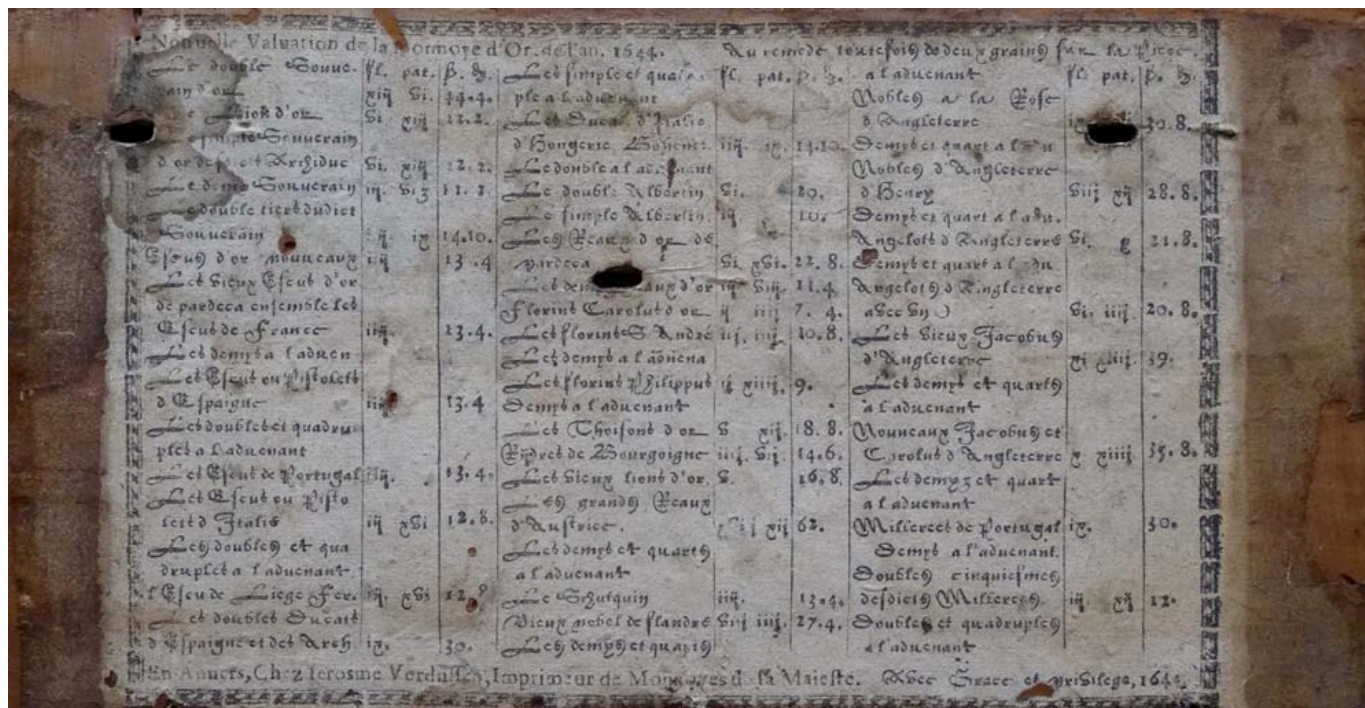 Nouuelle Valuation de la Monnoye d'Or, de l'an. 1644. Au remede toutefois de deux grains sur la Piece.
Le double Souue-
rain d'or
fl. pat. ß. ₰.
xiij vi. 44.4.
Lion d'or vi xiij 22.2.
simple Souuerain
d'or desdicts Archiduc vi. xiij 22.2.
Le demy Souuerain iij. vi3 11.1.
Le double tiers dudict
Souuerain ix 14.10.
Escus d'or nouueaux iiij 13.4
Les vieux Escus d'or
de pardeca ensemble les
Escus de France iiij. 13.4.
Les demys a l'aduen
Les Escus ou Pistolets
d'Espaigne 13.4
Les doubles et quadru-
ples a l'aduenant
Les Escus de Portugal 13.4.
Les Escus ou Pisto
lets d'Italie iij xvi 12.8.
Les doubles et qua
druples a l'aduenant.
l'Escu de Liege Fer. iij. xvi 12.8
Les doubles Ducats
d'Espaigne et des Arch ix. 30.
Les simple et quatru-
ple a l'aduenant
fl. pat. ß. ₰.
Les Ducats d'Italie
d'Hongerie Boheme iiij. ix. 14.10.
Le double a l'aduenant
Le double Albertin vi. 20.
Le simple Albertin. iij. 10.
Les Reaux d'or de
pardeca vi xvi. 22.8.
Les demy Reaux d'or iij viij. 11.4.
Florins Carolus d'or ij iiij 7.4.
Les florins S. André iij. iiij 10.8.
Les demys a l'aduena
Les florins Philippus ij xiiij. 9.
Demys a l'aduenant
Les Thoisons d'or v xij. 18.8.
Ridres de Bourgoigne iiij. vij. 14.6.
Les vieux lions d'or. v. 16.8.
Les grands Reaux
d'Austrice. xviij xij 62.
Les demys et quarts
a l'aduenant
Le Schutquin iiij. 13.4.
Vieux nobel de flandre viij iiij. 27.4.
Les demys et quarts
a l'aduenant
fl. pat. ß. ₰.
Nobles a la Rose
d'Angleterre 30.8.
Demys et quart a l'adu
Nobles d'Angleterre
d'Henry viij xij 28.8.
Demys et quart a l'adu.
Angelots d'Angleterre vi. x 21.8.
Demys et quart a l'adu
Angelots d'Angleterre
avec vn O vi. iiij. 20.8.
Les vieux Jacobus
d'Angleterre xi xiiij. 39.
Les demys et quarts
a l'aduenant
Nouueaux Jacobus et
Carolus d'Angleterre x xiiij 35.8.
Les demyz et quart
a l'aduenant
Millerees de Portugal ix. 30.
Demys a l'aduenant.
Doubles cinquiesmes
desdicts Millerees. iij xij 12.
Doubles et quadruples
a l'aduenant
En Anuers, Chez Ierosme Verdussen, Imprimeur de Monnoyes de sa Maiesté. Avec Grace et privilege, 1644.